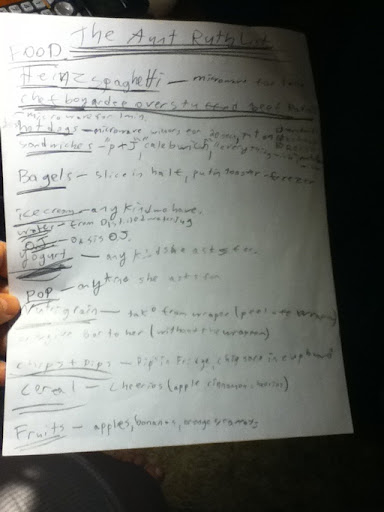 The Aunt Ruth List
FOOD
Heinz spaghetti - microwave for 1 min
chef boyardee overstuffed beef
microwave for 1 min.
hotdogs - microwave
sandwiches - P + J,
Bagels - slice in half, put in toaster - freezer
icecream - any kind we have.
water - from
OJ - Oasis OJ.
yogurt - any kind she asks for.
POP - any kind she asks for
Nutrigrain - take from wrapper (peel
give bar to her (without the wrapper)
chips + Dips - Dip in Fridge, chips are in cupboard
cereal - cheerios (apple cinnamon cheerios)
Fruits - apples, bananas, oranges,